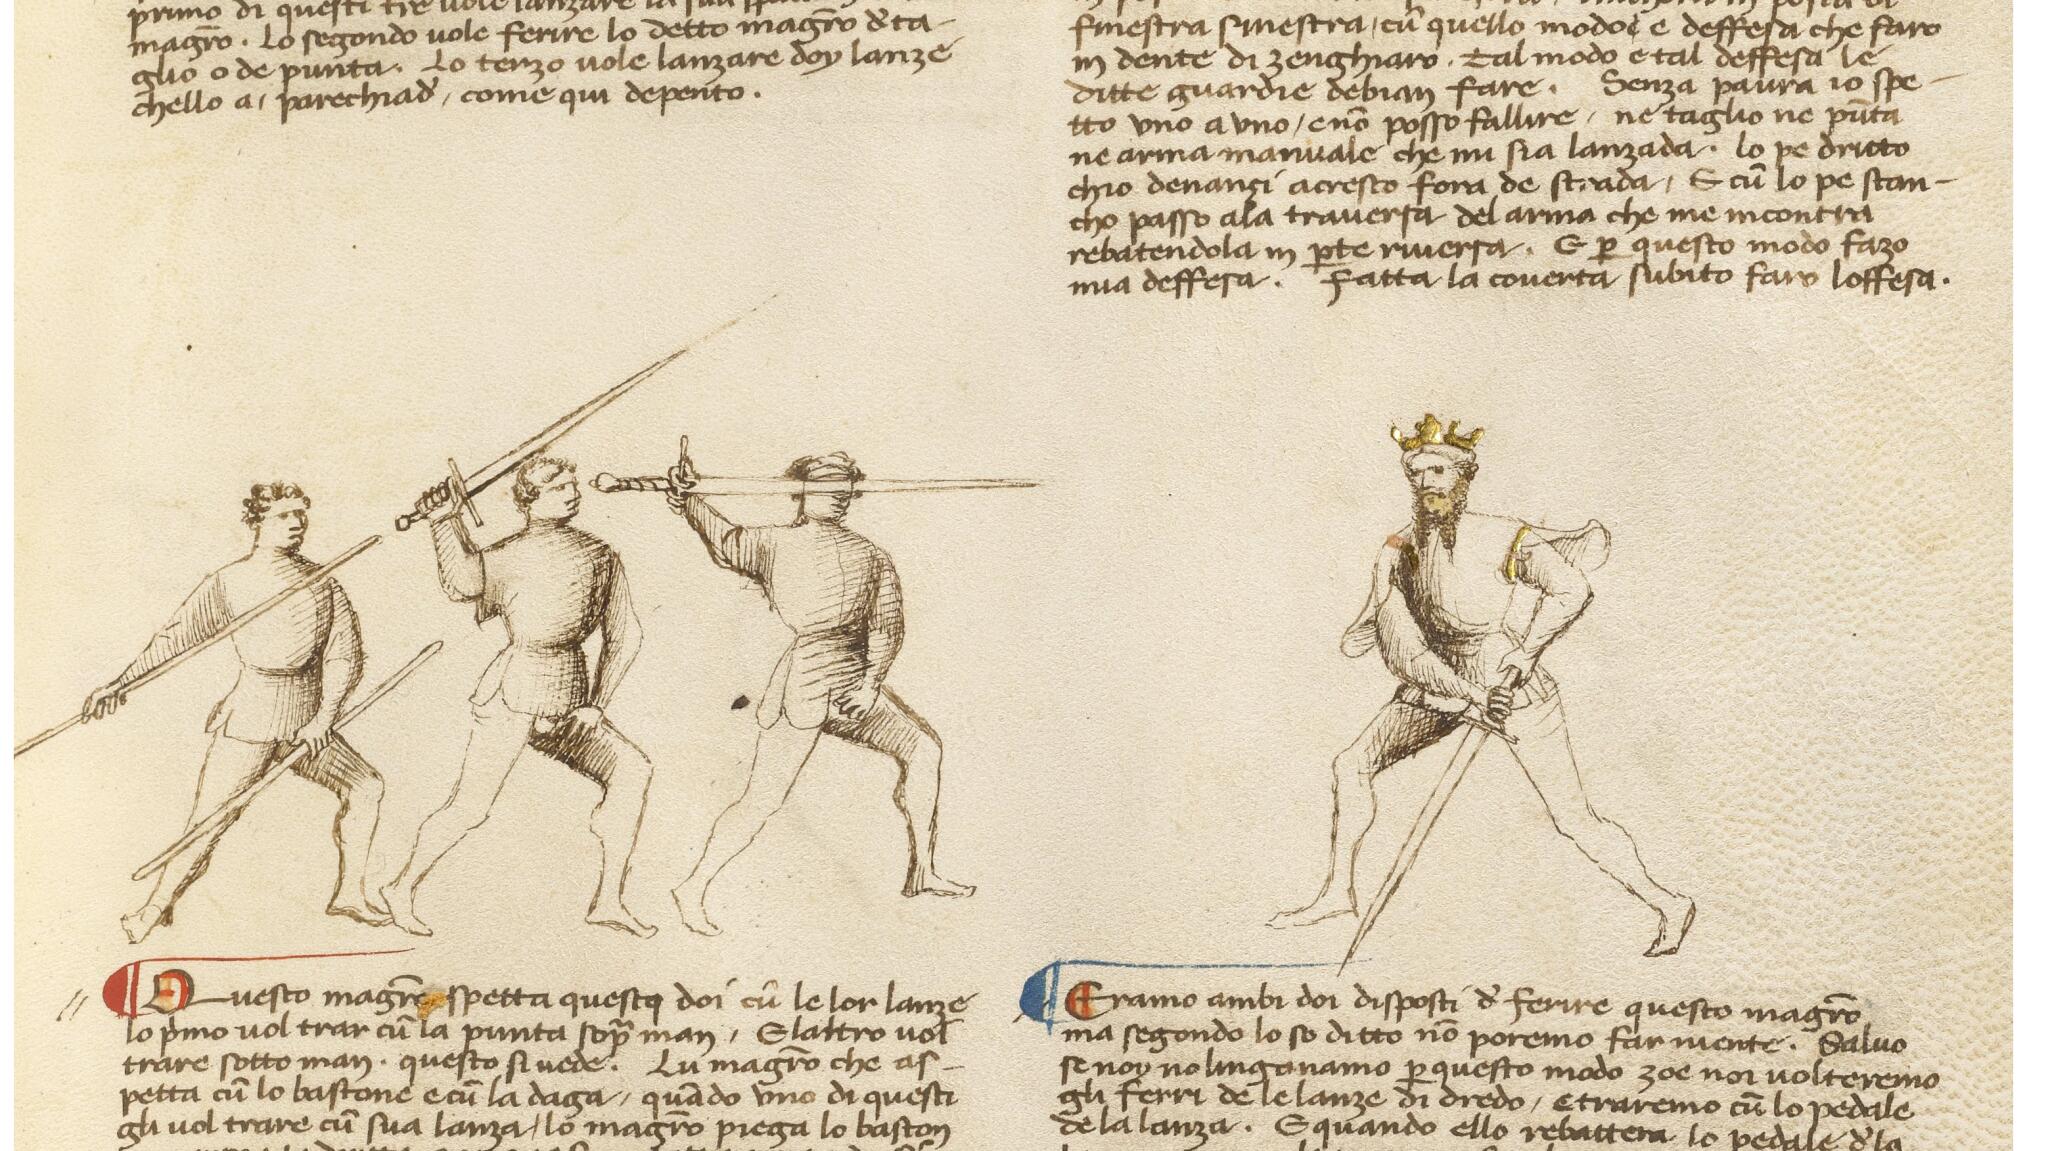 primo di questi tre vole lanzare la sua
magr̄o. Lo segondo vole ferire lo detto magr̄o d'ta-
glio o de punta. Lo terzo vole lanzare doy lanze
chello a, parechiad', come qui depento.
finestra sinestra, cū quello modo e deffesa che faro
in dente di zenghiaro. Tal modo e tal deffesa le
ditte guardie debian fare. Senza paura io spe-
tto uno a uno, e nō posso fallire, ne taglio ne pūta
ne arma manuale che mi sia lanzada. lo pe dritto
chio denanzi acresco fora de strada, E cū lo pe stan-
cho passo ala traversa del arma che me incontra
rebatendola in p̄te riversa. E p̄ questo modo fazo
mia deffesa. Fatta la coverta subito faro loffesa.
Questo magr̄o spetta questi doi cū le lor lanze
lo p̄mo vol trar cū la punta sop̄ man, E laltro vol
trare sotto man. questo si vede. Lu magr̄o che as-
petta cū lo bastone e cū la daga, quādo uno di questi
gli vol trare cū sua lanza, lo magr̄o piega lo baston
Eramo ambi doi disposti d' ferire questo magr̄o
ma segondo lo so ditto nō poremo far niente. Salvo
se noy no linganamo p̄ questo modo zoe noi volteremo
gli ferri de le lanze di dredo, e traremo cū lo pedale
de la lanza. E quando ello rebattera lo pedale d' la